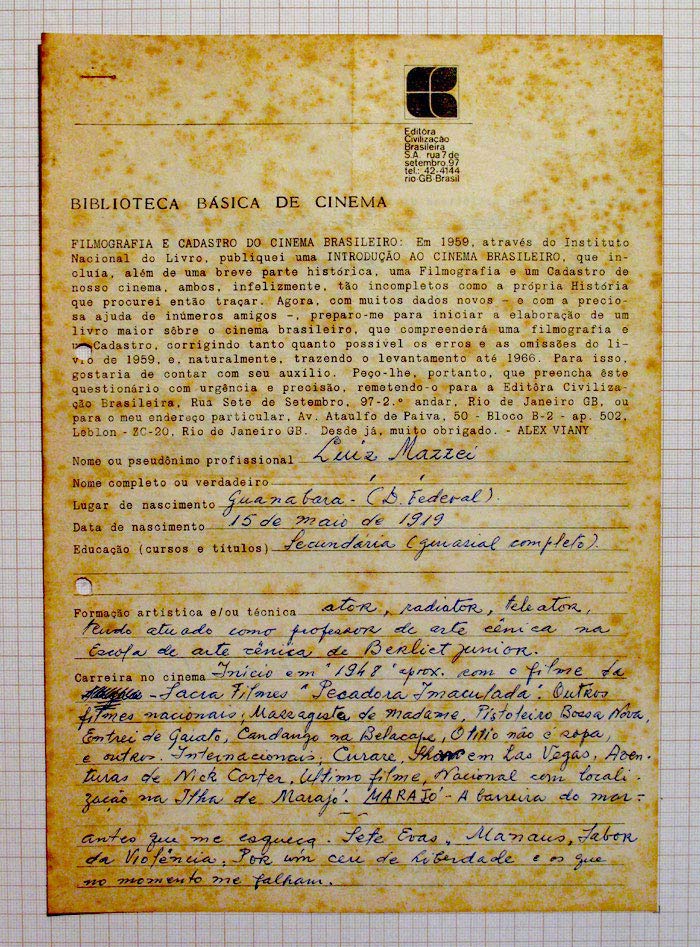 Editôra
Civilização
Brasileira
S.A. rua 7 de
setembro, 97
tel.: 42-4144
rio·GB·Brasil
BIBLIOTECA BÁSICA DE CINEMA
FILMOGRAFIA E CADASTRO DO CINEMA BRASILEIRO: Em 1959, através do Instituto
Nacional do Livro, publiquei uma INTRODUÇÃO AO CINEMA BRASILEIRO, que in-
cluía, além de uma breve parte histórica, uma Filmografia e um Cadastro de
nosso cinema, ambos, infelizmente, tão incompletos como a própria História
que procurei então traçar. Agora, com muitos dados novos - e com a precio-
sa ajuda de inúmeros amigos -, preparo-me para iniciar a elaboração de um
livro maior sôbre o cinema brasileiro, que compreenderá uma filmografia e
um Cadastro, corrigindo tanto quanto possível os erros e as omissões do li-
vro de 1959, e, naturalmente, trazendo o levantamento até 1966. Para isso,
gostaria de contar com seu auxílio. Peço-lhe, portanto, que preencha êste
questionário com urgência e precisão, remetendo-o para a Editôra Civiliza-
ção Brasileira, Rua Sete de Setembro, 97-2.º andar, Rio de Janeiro GB, ou
para o meu endereço particular, Av. Ataulfo de Paiva, 50 - Bloco B-2 - ap. 502,
Leblon - ZC-20, Rio de Janeiro GB. Desde já, muito obrigado. - ALEX VIANY
Nome ou pseudônimo profissional Luiz Mazzei
Nome completo ou verdadeiro " "
Lugar de nascimento Guanabara - (D. Federal).
Data de nascimento 15 de maio de 1919
Educação (cursos e títulos) Secundária (ginasial completo).
Formação artística e/ou técnica ator, radiator, teleator,
tendo atuado como professor de arte cênica na
Escola de arte cênica de Berliet junior.
Carreira no cinema Início em "1948" aprox. com o filme da
- Sacra Filmes "Pecadora Imaculada". Outros
filmes nacionais, Massagista de Madame, Pistoleiro Bossa Nova,
Entrei de Gaiato, Candango na Belacap, O titio não é sopa,
e outros. Internacionais, Curare, Show em Las Vegas, Aven-
turas de Nick Carter, Ultimo filme, Nacional com locali-
zação na Ilha de Marajó. MARAJÓ - A barreira do mar-
antes que me esqueça. Sete Evas, Manaus, Sabor
da Violência, Por um ceu de liberdade e os que
no momento me falham.